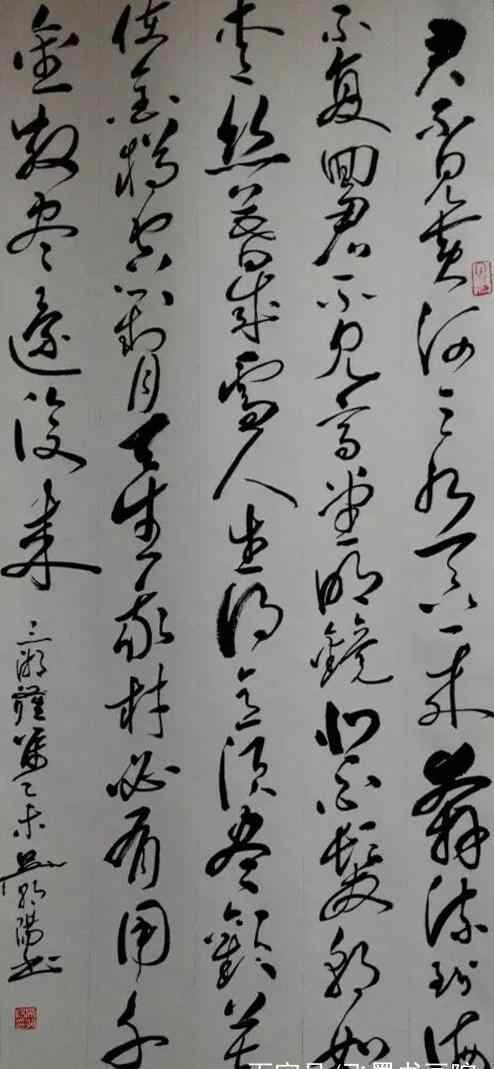 君不見黄河之水天上来奔流到海
不复回君不见高堂明鏡悲白髮朝如
青絲暮成雪人生得意须尽歡莫
使金樽空對月天生我材必有用千
金散尽還復来
三湘 乙未 陽书
百家号/飞墨书画院